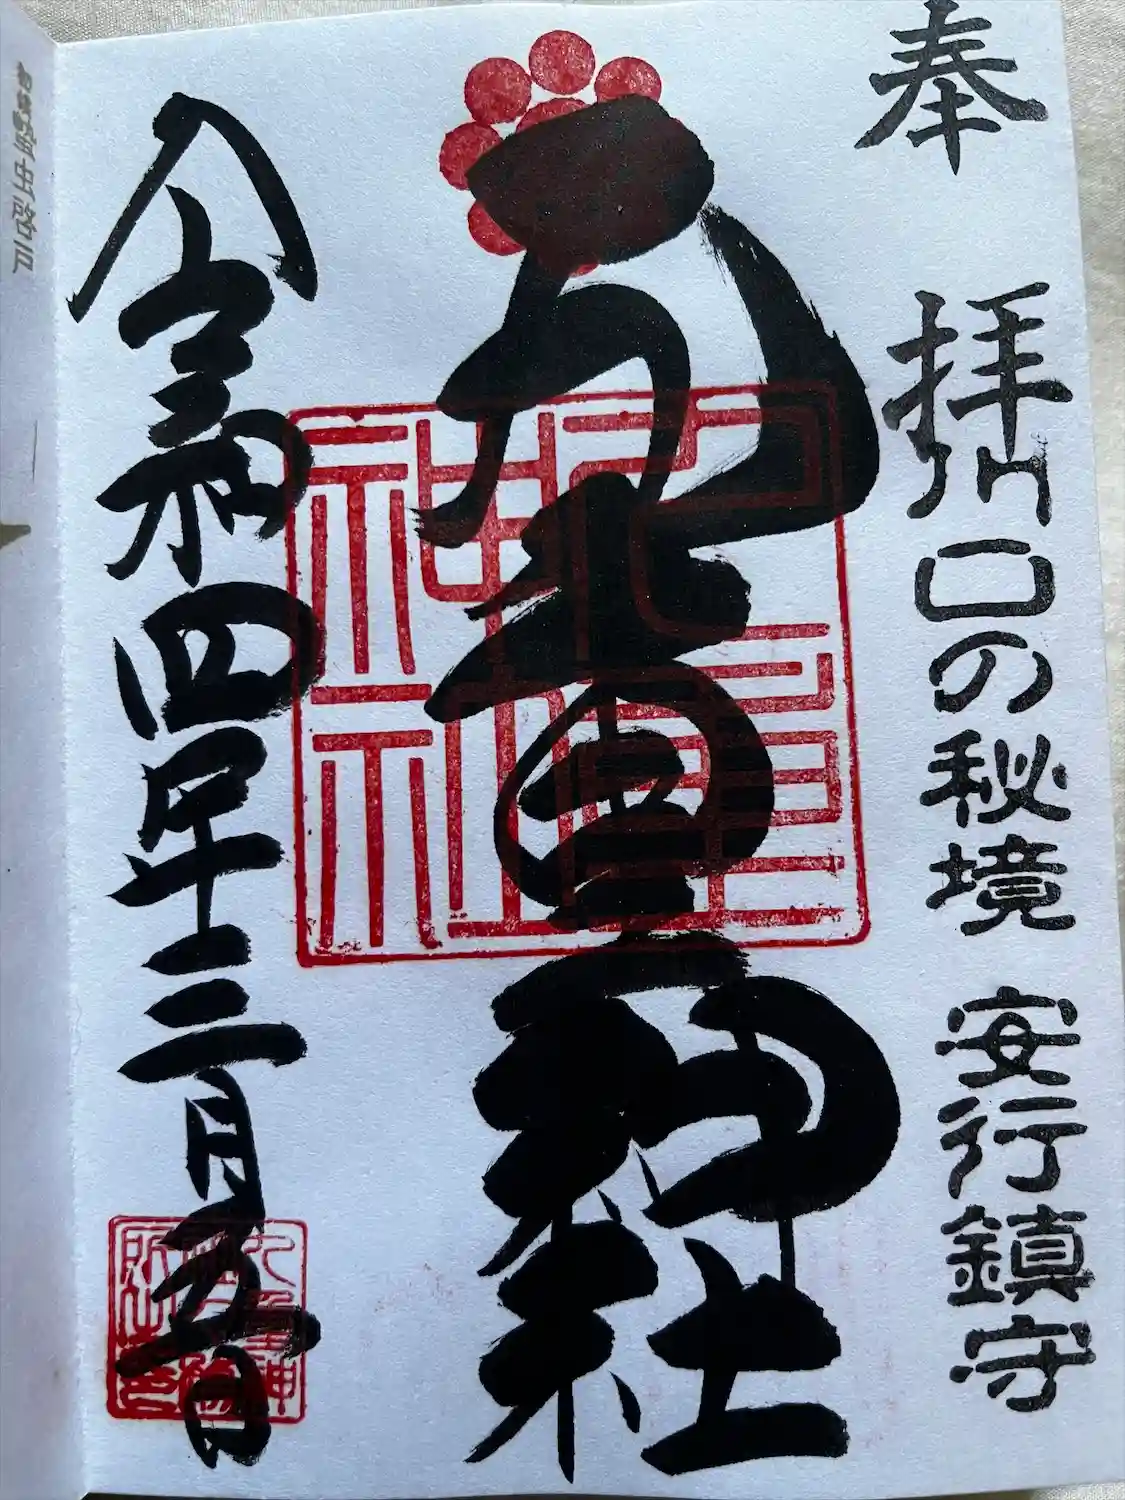 奉拝
川口の秘境 安行鎮守
九重神社
九重神社
令和四年三月五日